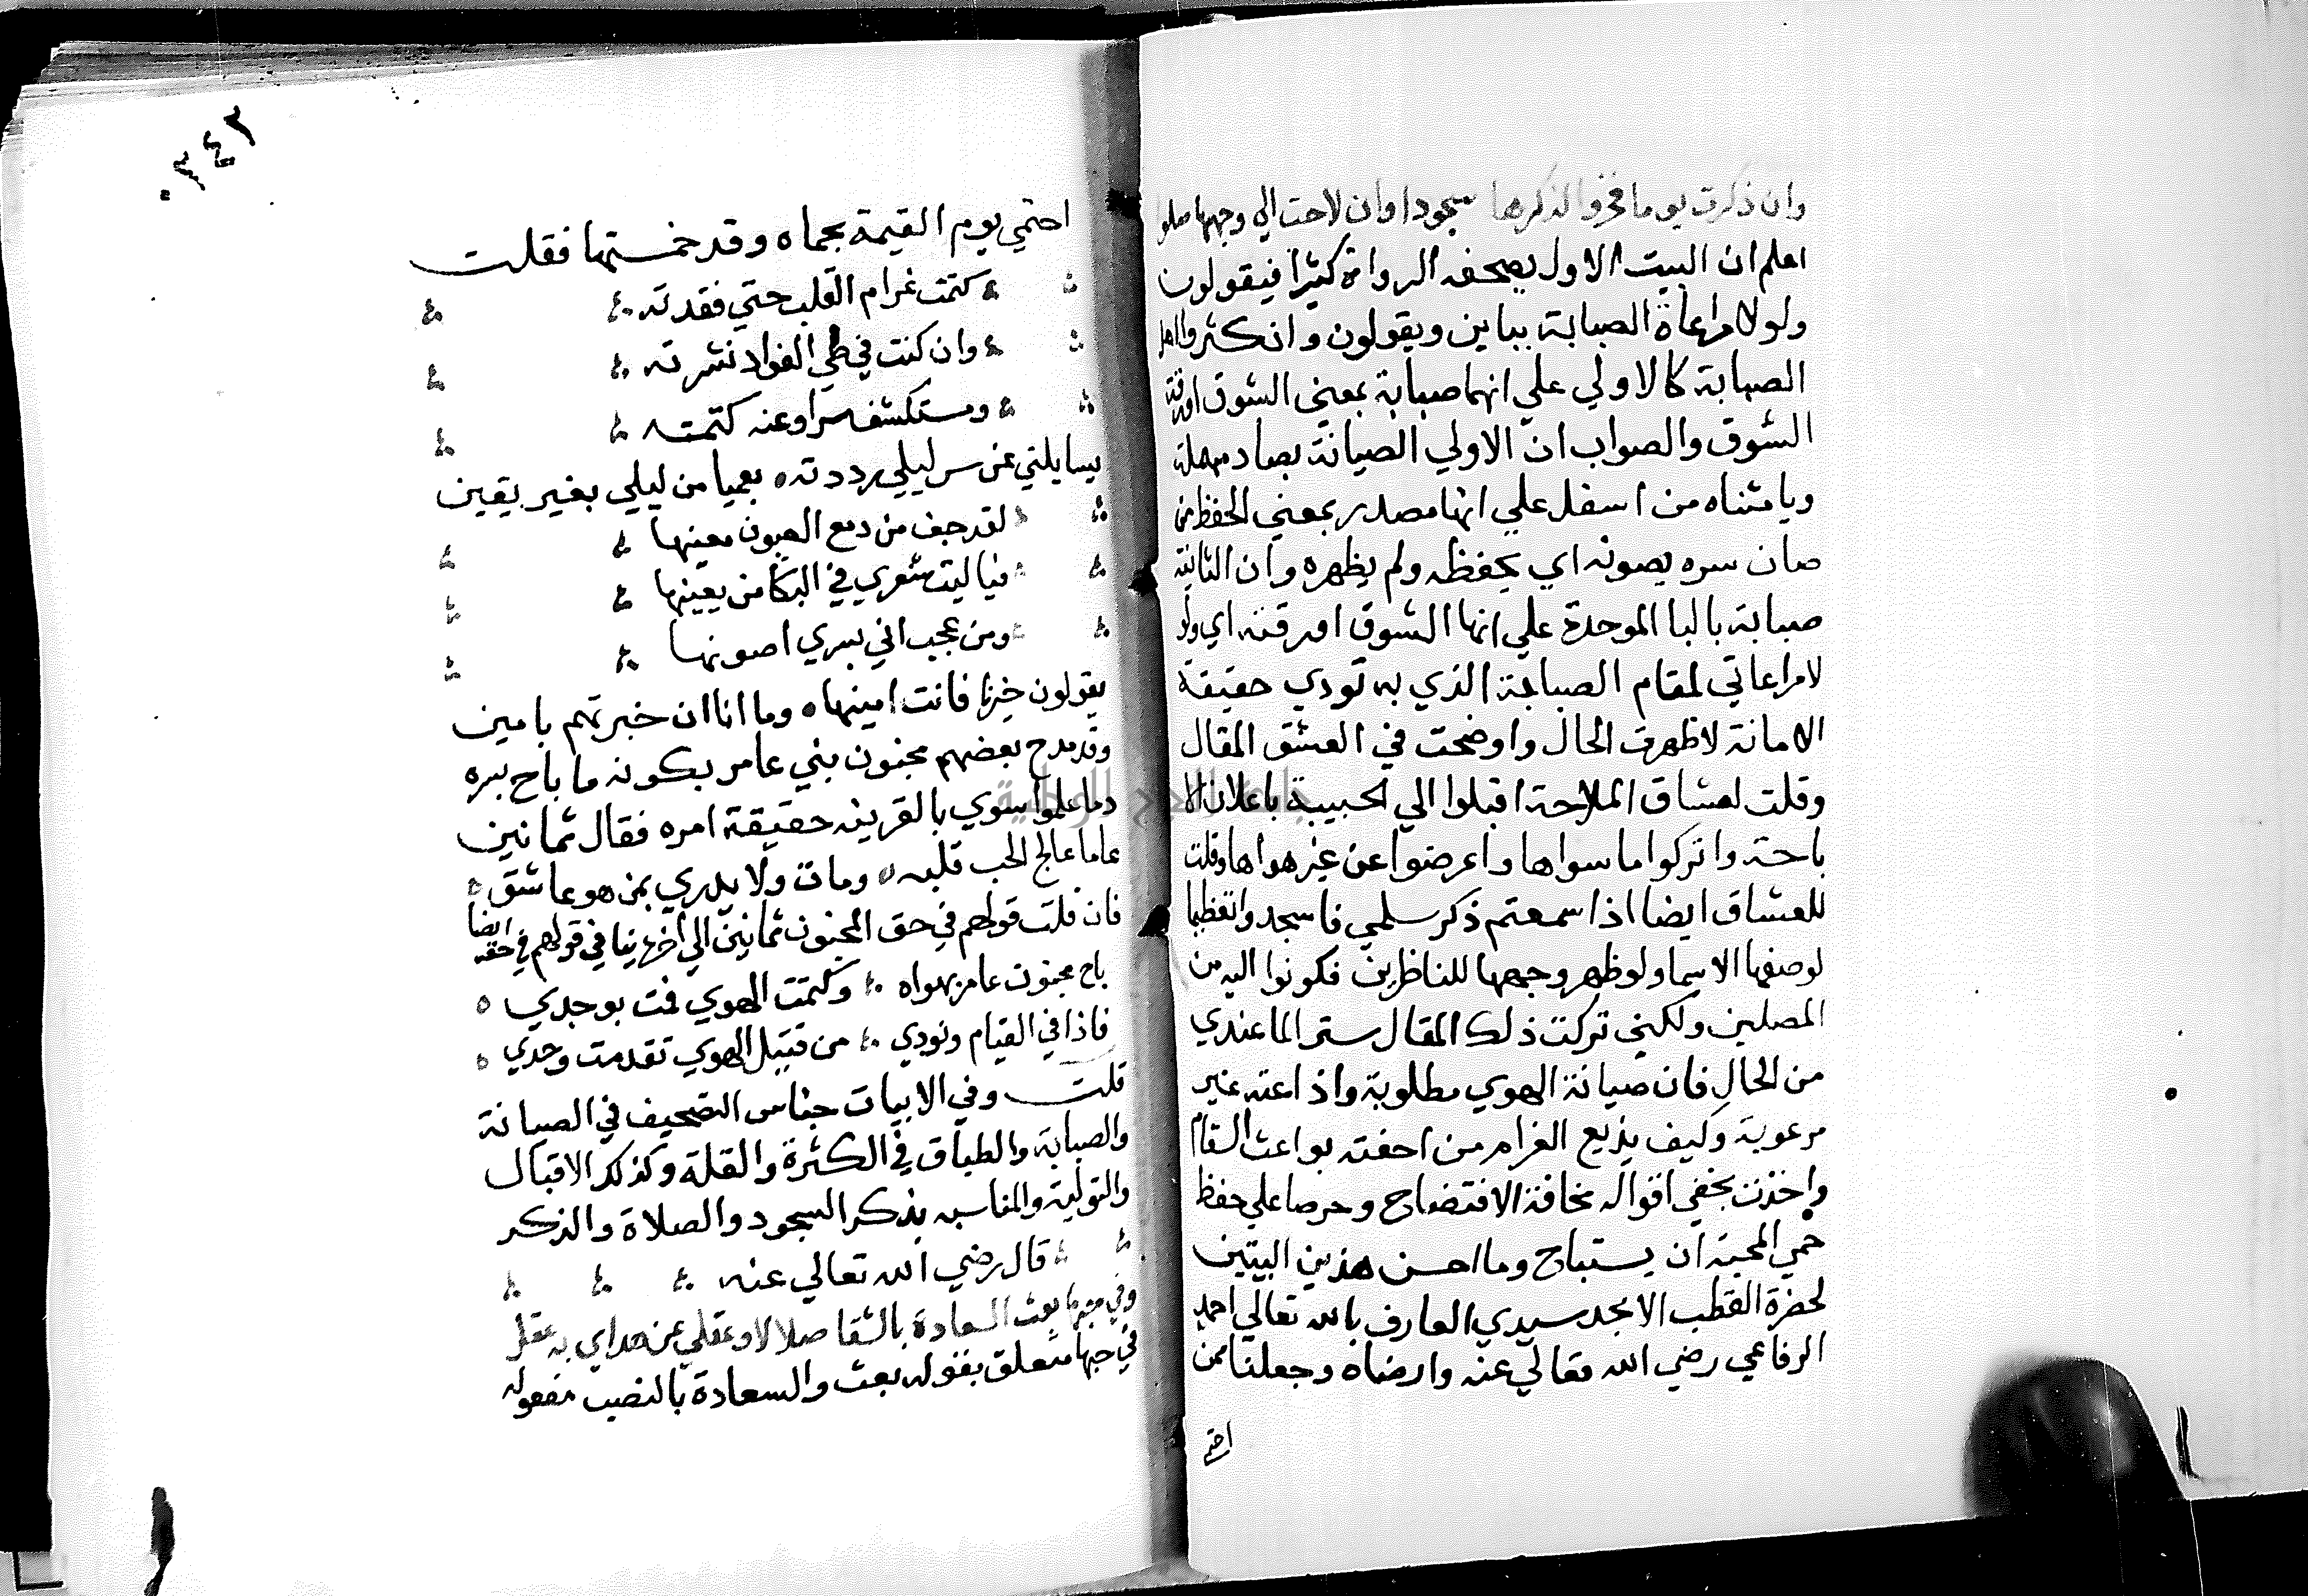 وان ذكرت يوما فخروا لذكرها سجودا وان لاحت الي وجهها صلوا
اعلم ان البيت الاول يصحفه الرواة كثيرا فيقولون
ولولا مراعاة الصبابة بباين ويقولون وان كثروا اهل
الصبابة كالاولي علي انهما صبابة بمعني الشوق اورقة
الشوق والصواب ان الاولي الصيانة بصاد مهملة
ويا مثناه من اسفل علي انها مصدر بمعني الحفظ من
صان سره يصونه اي يحفظه ولم يظهره وان الثانية
صبابة بالبا الموحدة علي انها الشوق اورقته اي ولو
لا مراعاتي لمقام الصيانة الذي به تودي حقيقة
الامانة لاظهرت الحال واوضحت في العشق المقال
وقلت لعشاق الملاحة اقبلوا الي الحبيبة باعلان الا
باحة واتركوا ما سواها واعرضوا عن غير هواها وقلت
للعشاق ايضا اذا سمعتم ذكر سلمي فاسجدوا تعظيما
لوصفها الاسما ولو ظهر وجهها للناظرين فكونوا اليه من
المصلين ولكني تركت ذلك المقال سترا لما عندي
من الحال فان صيانة الهوي مطلوبة واذاعته غير
مرغوبة وكيف يذيع الغرام من اخفته بواعث السقام
واخذت بخفي اقواله مخافة الافتضاح وحرصا علي حفظ
حمي المحبة ان يستباح وما احسن هذين البيتين
لحضرة القطب الامجد سيدي العارف بالله تعالي احمد
الرفاعي رضي الله تعالي عنه وارضاه وجعلنا ممن
احتم
٠٣٤٣
احتمي يوم القيمة بحماه وقد خمستها فقلت
كتمت غرام القلب حتي فقدته
وان كنت في طي الفواد نشرته
ومستكشف سرا وعنه كتمته
يسايلني عن سر ليلي رددته بعميا من ليلي بغير يقين
لقد جف من دمع العيون معينها
فيا ليت شعري في البكا من يعينها
ومن عجب اني بسري اصونها
يقولون خبرنا فانت امينها وما انا ان خبرتهم بامين
وقد مدح بعضهم مجنون بني عامر بكونه ما باح بسره
وما علموا سوي بالقرينه حقيقة امره فقال ثمانين
عاما عالج الحب قلبه ومات ولا يدري بمن هو عاشق
فان قلت قولهم في حق المجنون ثمانين الي اخره ينافي قولهم في حقه ايضا
باح مجنون عامر بهواه وكتمت الهوي فمت بوجدي
فاذا في القيام ونودي من قتيل الهوي تقدمت وحدي
قلت وفي الابيات جناس التصحيف في الصيانة
والصبابة والطباق في الكثرة والقلة وكذلك الاقبال
والتولية والمناسبه بذكر السجود والصلاة والذكر
قال رضي الله تعالي عنه
وفي حبها بعت السعادة بالشقا ضلالا وعقلي عن هداي به عقل
في حبها متعلق بقوله بعت والسعادة بالنصب مفعوله